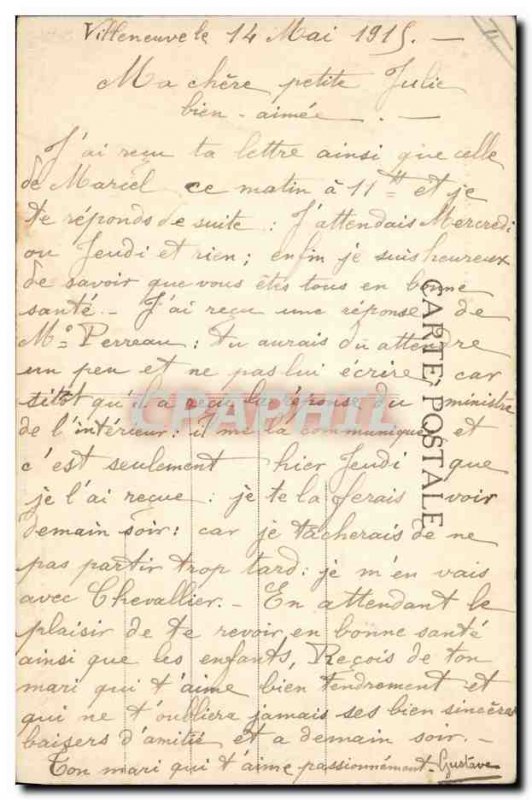 Villeneuve le 14 Mai 1915. —
Ma chère petite Julie
bien-aimée. —
J'ai reçu ta lettre ainsi que celle
de Marcel ce matin à 11 H et je
te réponds de suite : J'attendais Mercredi
ou Jeudi et rien ; enfin je suis heureux
de savoir que vous êtes tous en bonne
santé. - J'ai reçu une réponse de
Mo Perreau : tu aurais du attendre
un peu et ne pas lui écrire, car
sitôt qu'il a reçu la réponse du ministre
de l'intérieur : il me la communique et
c'est seulement hier Jeudi que
je l'ai reçue : je te la ferais voir
demain soir : car je tacherais de ne
pas partir trop tard : je m'en vais
avec Chevallier. - En attendant le
plaisir de te revoir en bonne santé
ainsi que les enfants, Reçois de ton
mari qui t'aime bien tendrement et
qui ne t'oubliera jamais ses bien sincères
baisers d'amitié et a demain soir. -
Ton mari qui t'aime passionnément - Gustave
CARTE POSTALE
CPAPHIL